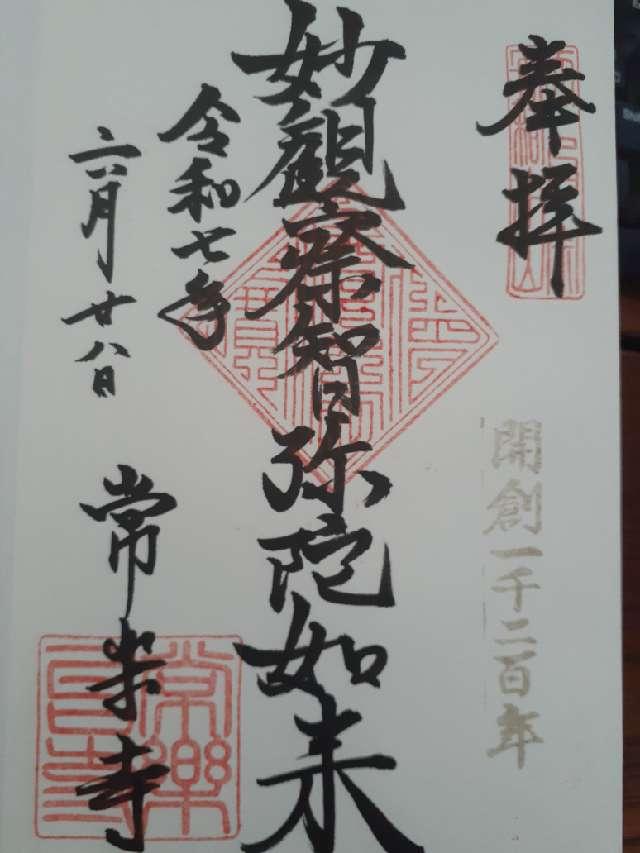 奉拝
開創一千二百年
妙觀察智弥陀如来
令和七年
六月廿八日
常楽寺